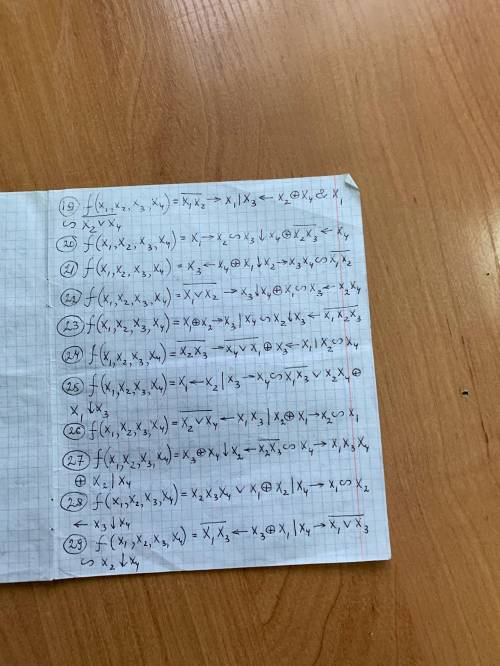 19 f(x₁,x₂,x₃,x₄) = x̅₁̅x̅₂̅ → x₁|x₃ ← x₂⊕x₄ & x₁
∽ x̅₂̅ ̅∨̅ ̅x̅₄̅
20 f(x₁,x₂,x₃,x₄) = x₁→x₂∽x₃↓x₄⊕x̅₂̅x̅₃̅ ← x₄
21 f(x₁,x₂,x₃,x₄) = x₃ ← x₄⊕x₁↓x₂→x₃x₄∽x̅₁̅x̅₂̅
22 f(x₁,x₂,x₃,x₄) = x̅₁̅ ̅∨̅ ̅x̅₂̅ → x₃↓x₄⊕x₁∽x₃ ← x₂x₄
23 f(x₁,x₂,x₃,x₄) = x₁⊕x₂→x₃|x₄∽x₂↓x₃ ← x̅₁̅x̅₂̅x̅₃̅
24 f(x₁,x₂,x₃,x₄) = x̅₂̅x̅₃̅ → x̅₄̅ ̅∨̅ ̅x̅₁̅ ⊕x₃ ← x₁|x₂∽x₄
25 f(x₁,x₂,x₃,x₄) = x₁←x₂|x₃→x₄∽x̅₁̅x̅₃̅ ∨ x₂x₄⊕
x₁↓x₃
26 f(x₁,x₂,x₃,x₄) = x̅₂̅ ̅∨̅ ̅x̅₄̅ ← x₁x₃|x₂⊕x₁→x₂∽x₁
27 f(x₁,x₂,x₃,x₄) = x₃⊕x₄↓x₂←x̅₂̅x̅₃̅ ∽ x₄ → x₁x₃x₄
⊕ x₂|x₄
28 f(x₁,x₂,x₃,x₄) = x₂x₃x₄ ∨ x₁⊕x₂|x₄ → x₁∽x₂
← x₃↓x₄
29 f(x₁,x₂,x₃,x₄) = x̅₁̅x̅₃̅ ← x₃⊕x₁|x₄ → x̅₁̅ ̅∨̅ ̅x̅₃̅
∽ x₂↓x₄